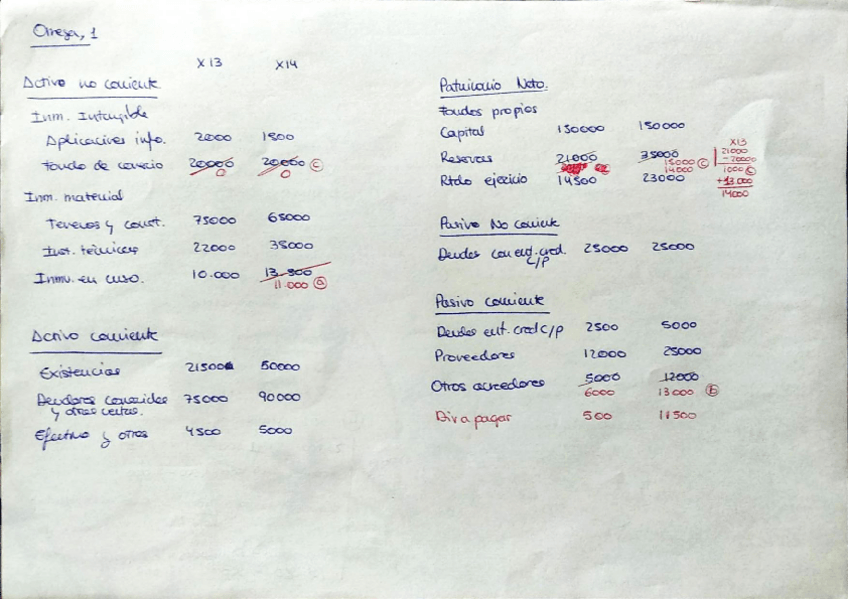 Omega, 1
X13 X14
Activo no corriente
Inm. Intangible
Aplicaciones info. 2000 1500
Fondo de comercio 20000 20000 c
0 0
Inm. material
Terrenos y const. 75000 65000
Inst. técnicas 22000 35000
Inmv. en curso. 10.000 13.500
11.000 a
Activo corriente
Existencias 21500 50000
Deudores comerciales 75000 90000
y otras cuentas.
Efectivo y otros 4500 5000
Patrimonio Neto.
Fondos propios
Capital 130000 150000
Reservas 21000 35000
15000 c
14000
Rtdo ejercicio 14500 23000
X13
21000
-20000
1000 c
+13.000
14000
Pasivo No corriente
Deudas con ent. cred. 25000 25000
c/p
Pasivo corriente
Deudas ent. cred c/p 2500 5000
Proveedores 12000 25000
Otros acreedores 5000 12000
6000 13000 b
Div a pagar 500 11500